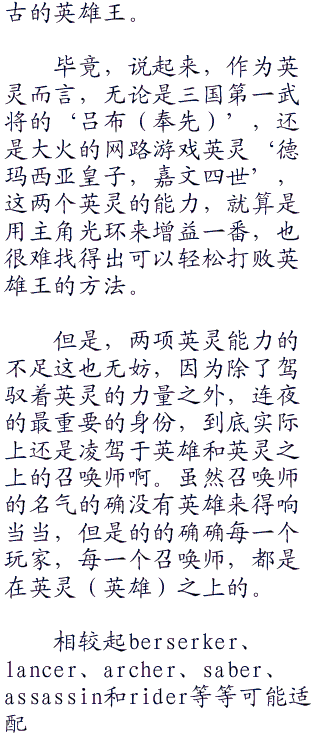 古的英雄王。
毕竟，说起来，作为英
灵而言，无论是三国第一武
将的‘吕布（奉先）’，还
是大火的网路游戏英灵‘德
玛西亚皇子，嘉文四世’，
这两个英灵的能力，就算是
用主角光环来增益一番，也
很难找得出可以轻松打败英
雄王的方法。
但是，两项英灵能力的
不足这也无妨，因为除了驾
驭着英灵的力量之外，连夜
的最重要的身份，到底实际
上还是凌驾于英雄和英灵之
上的召唤师啊。虽然召唤师
的名气的确没有英雄来得响
当当，但是的的确确每一个
玩家，每一个召唤师，都是
在英灵（英雄）之上的。
相较起berserker、
lancer、archer、saber、
assassin和rider等等可能适
配